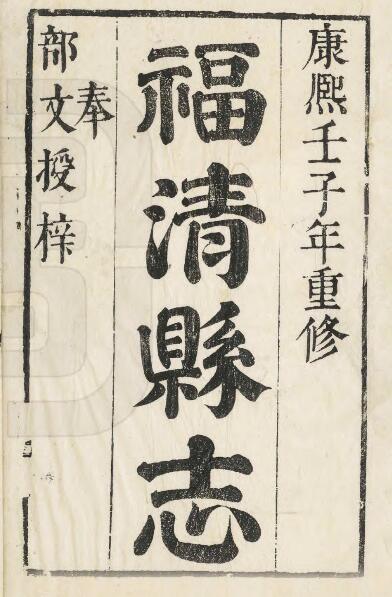 康熙壬子年重修
福清縣志
奉
部文授梓